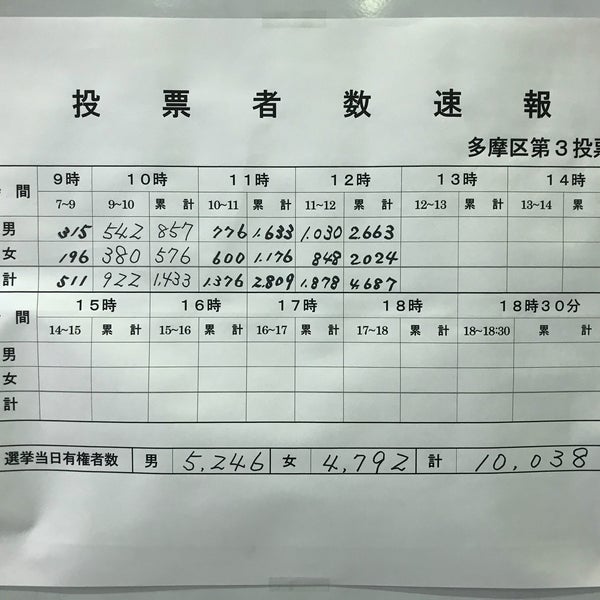 投票者数速報
多摩区第3投票
間 9時 10時 11時 12時 13時 14時
7~9 9~10 累計 10~11 累計 11~12 累計 12~13 累計 13~14 累
男 315 542 857 776 1.633 1.030 2.663
女 196 380 576 600 1.176 848 2024
計 511 922 1,433 1.376 2.809 1.878 4.687
間 15時 16時 17時 18時 18時30分
14~15 累計 15~16 累計 16~17 累計 17~18 累計 18~18:30 累計
男
女
計
選挙当日有権者数 男 5,246 女 4,792 計 10,038